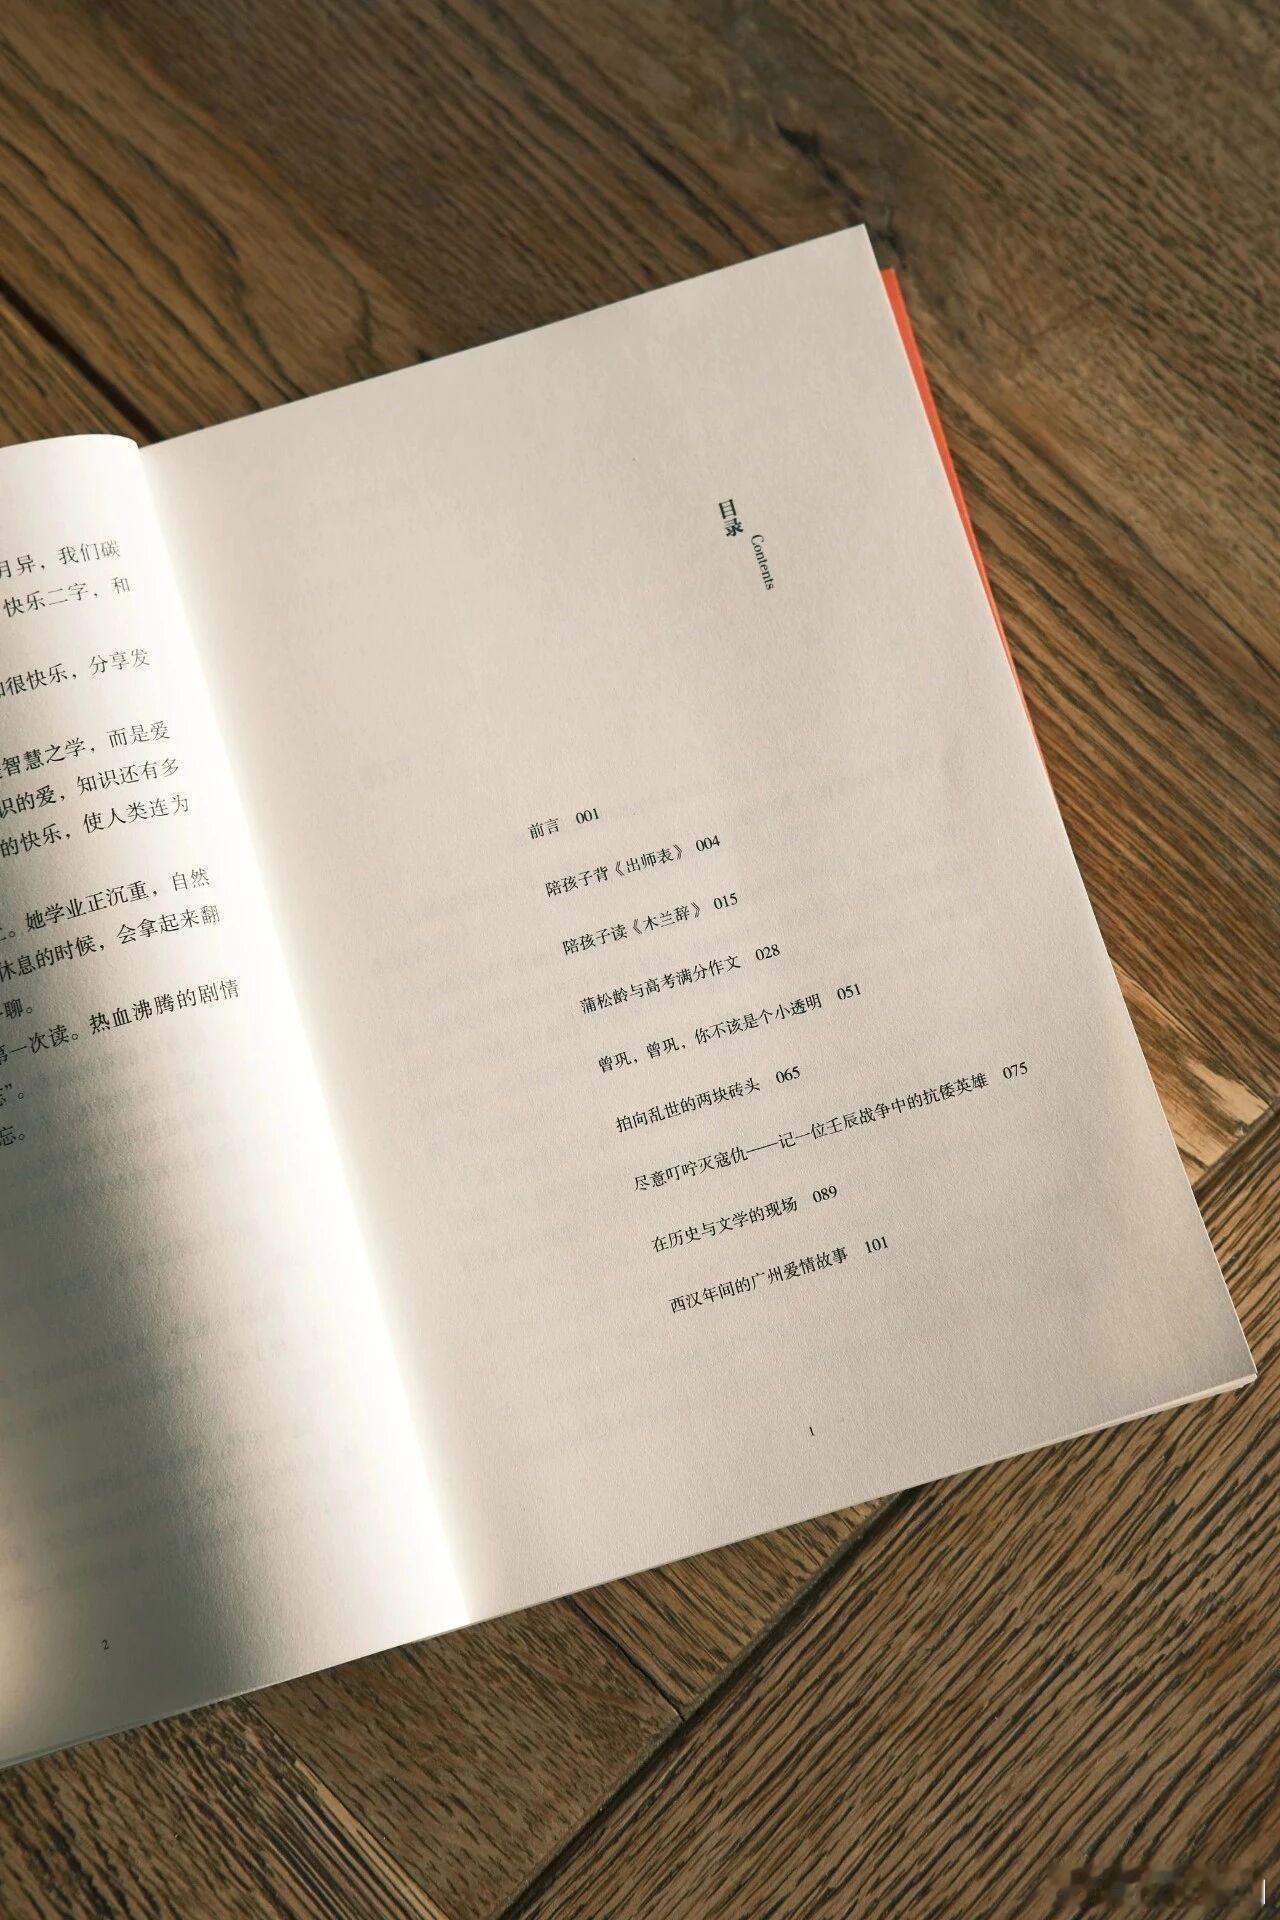 月异，我们碳
快乐二字，和
很快乐，分享发
智慧之学，而是爱
识的爱，知识还有多
的快乐，使人类连为
。她学业正沉重，自然
休息的时候，会拿起来翻
聊。
第一次读。热血沸腾的剧情
”。
忘。
2
目录
Contents
前言 001
陪孩子背《出师表》 004
陪孩子读《木兰辞》 015
蒲松龄与高考满分作文 028
曾巩，曾巩，你不该是个小透明 051
拍向乱世的两块砖头 065
尽意叮咛灭寇仇——记一位壬辰战争中的抗倭英雄 075
在历史与文学的现场 089
西汉年间的广州爱情故事 101
1